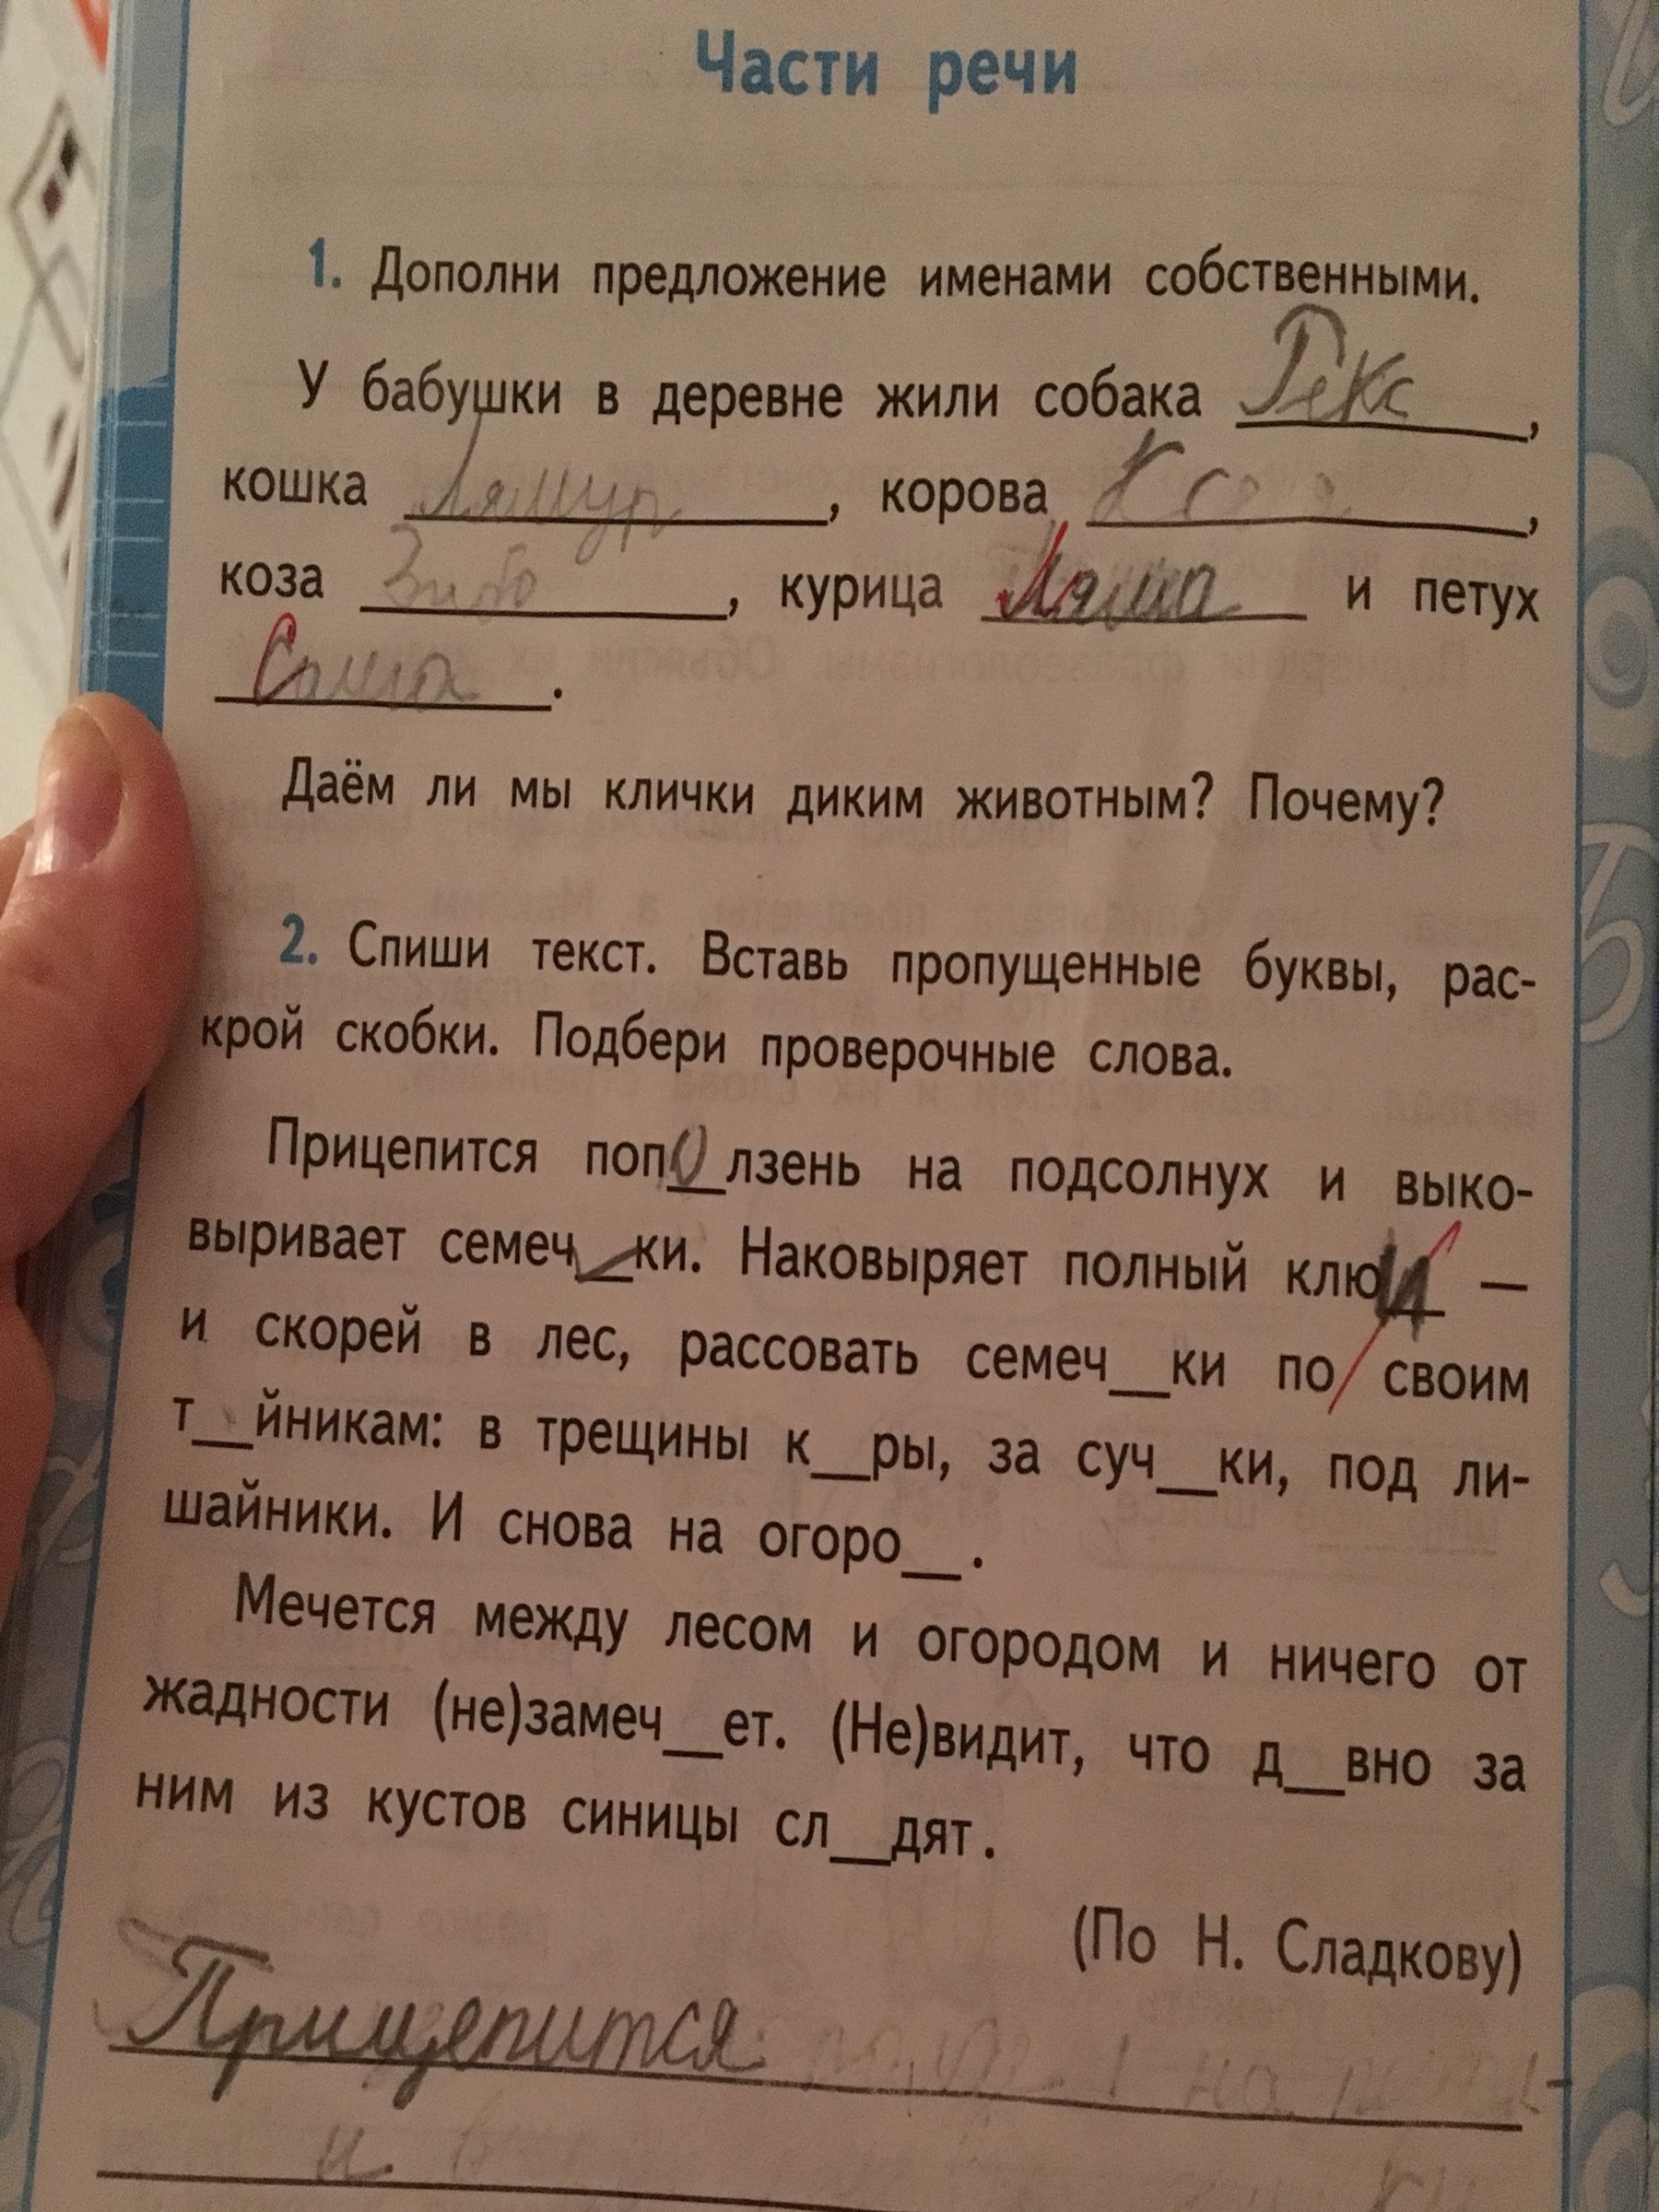 Части речи
1. Дополни предложение именами собственными.
У бабушки в деревне жили собака Рекс,
кошка Ляшур, корова ,
коза , курица Ляша и петух
Саша.
Даём ли мы клички диким животным? Почему?
2. Спиши текст. Вставь пропущенные буквы, рас-
крой скобки. Подбери проверочные слова.
Прицепится поп0лзень на подсолнух и выко-
выривает семеч__ки. Наковыряет полный клю__ —
и скорей в лес, рассовать семеч__ки по/ своим
т__йникам: в трещины к__ры, за суч__ки, под ли-
шайники. И снова на огоро__.
Мечется между лесом и огородом и ничего от
жадности (не)замеч__ет. (Не)видит, что д__вно за
ним из кустов синицы сл__дят.
(По Н. Сладкову)
Прицепится на
и